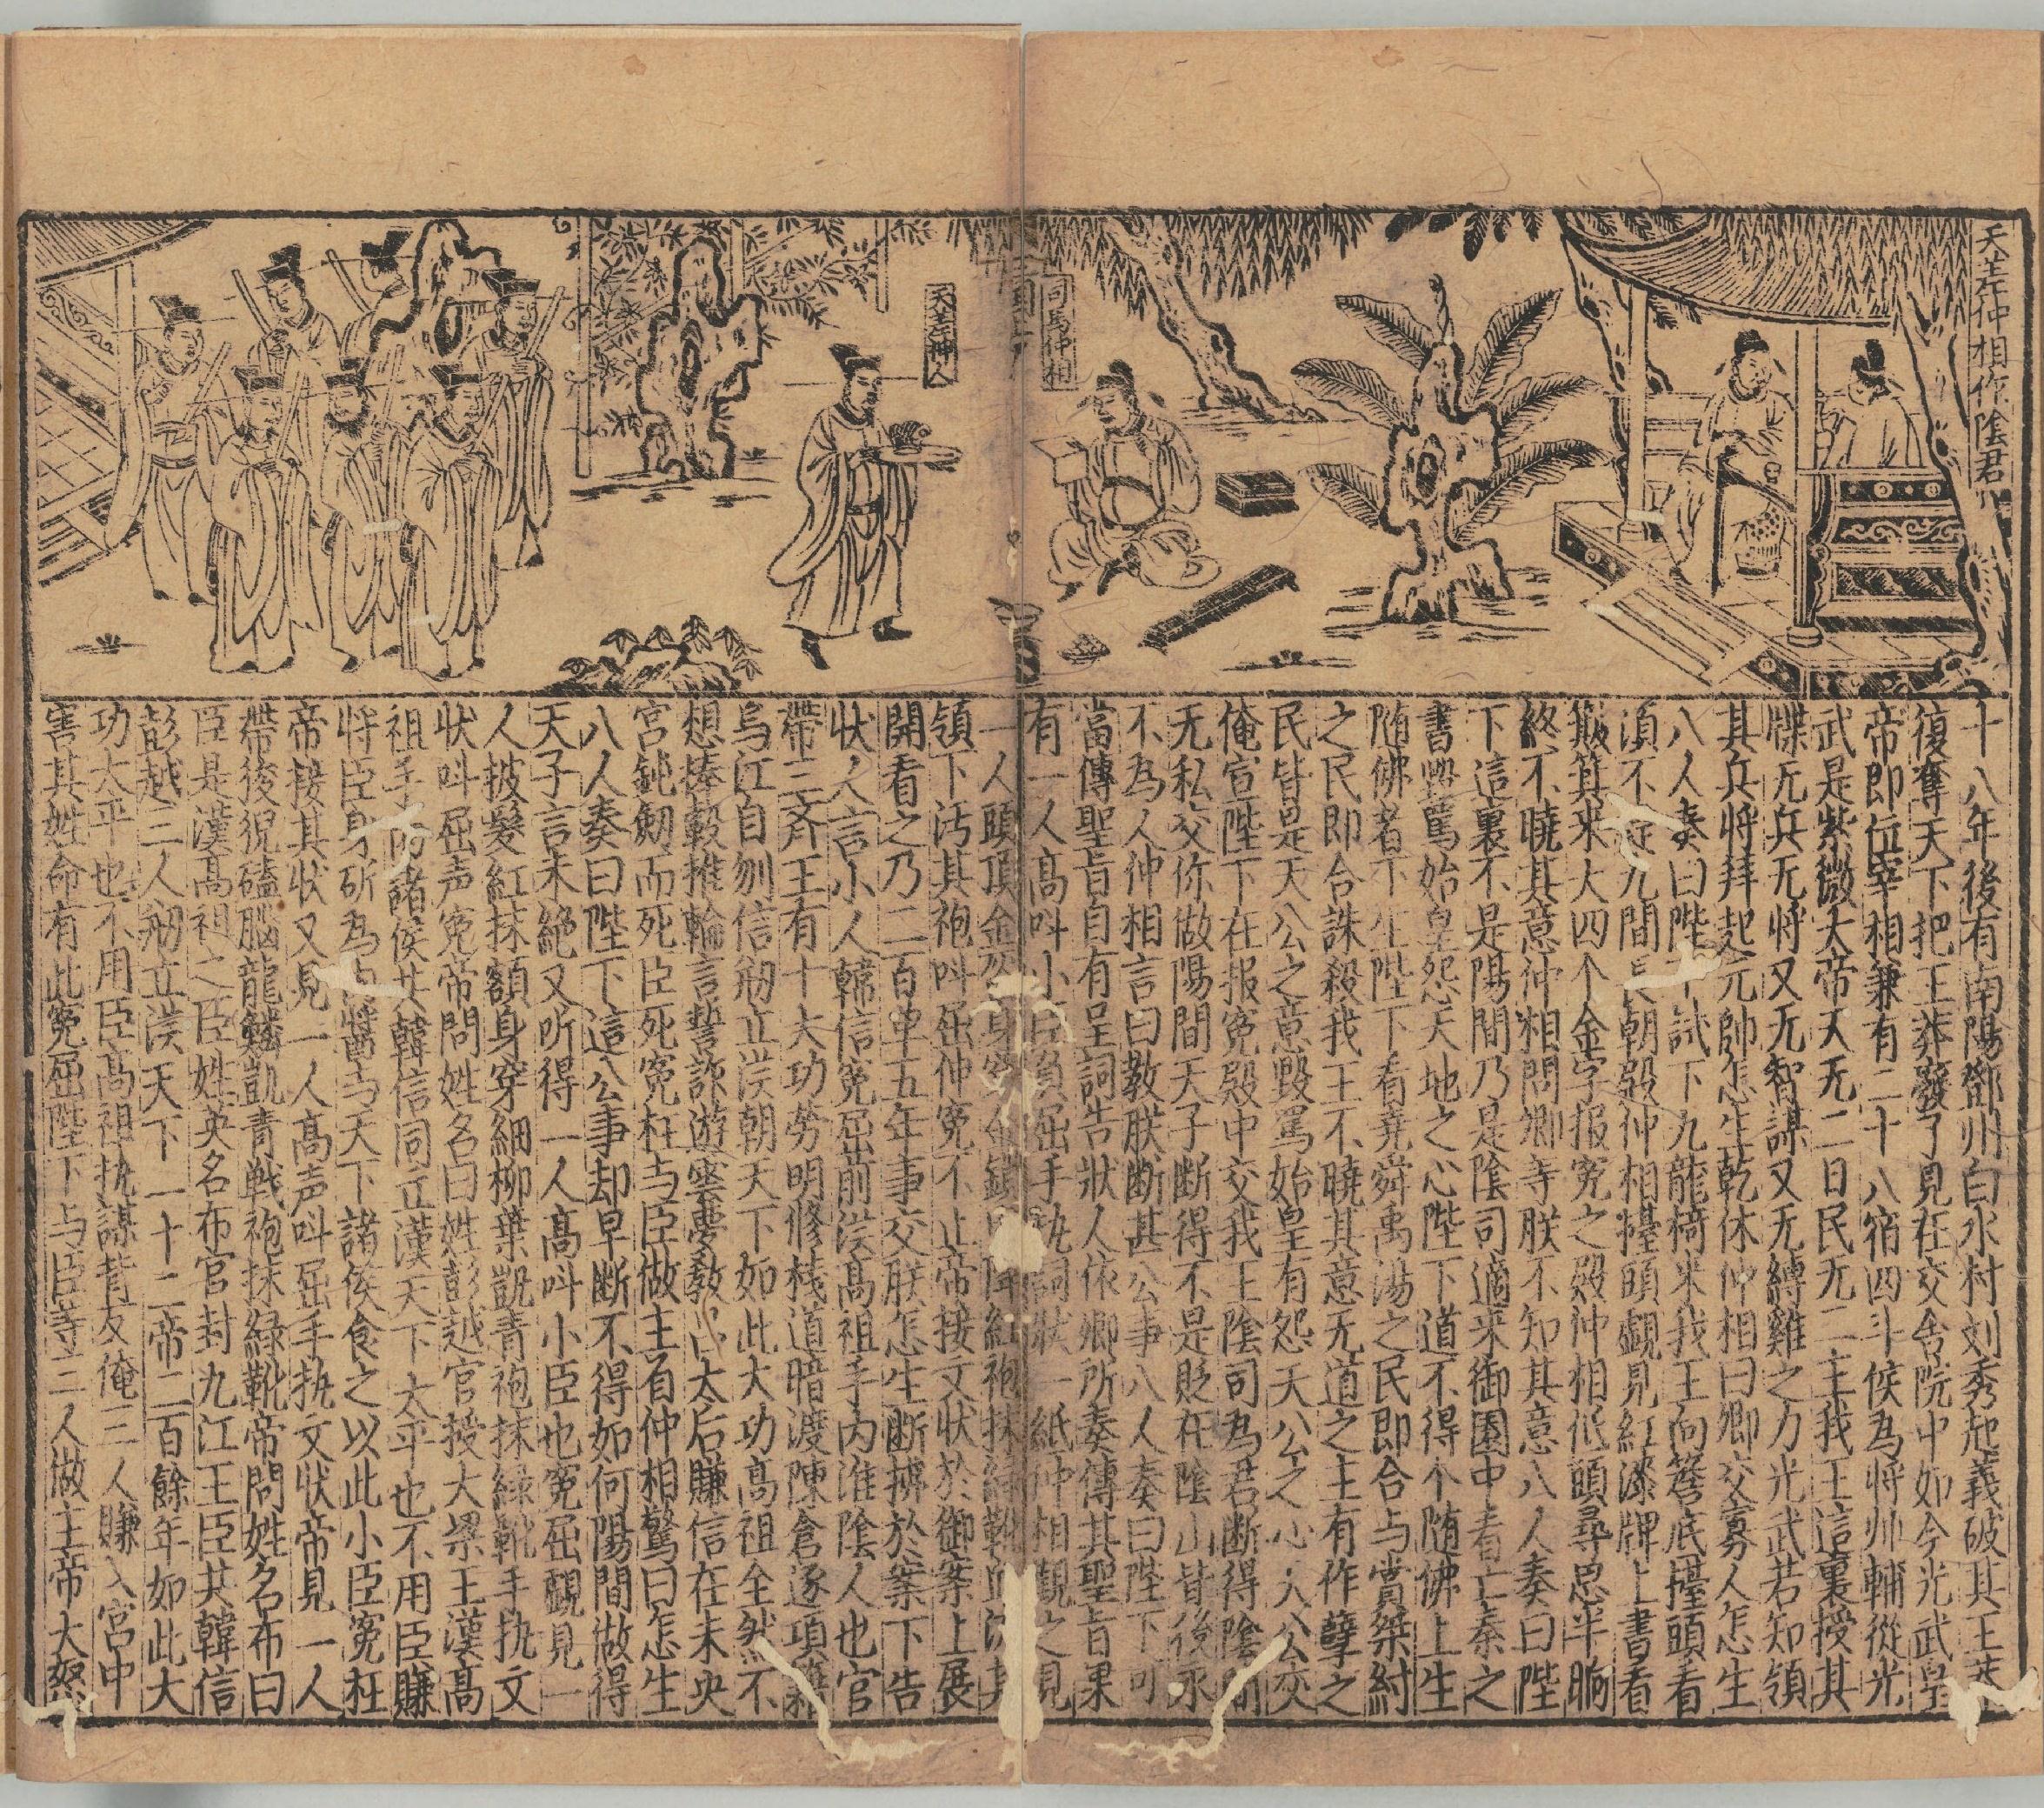 天差仲相作陰君
司馬仲相
天差神人
十八年後有南陽鄧州白水村刘秀起義破其王莽
復奪天下把王莽廢了見在交舍院中如今光武皇
帝即位宰相兼有二十八宿四斗侯為将帅輔從光
武是紫微大帝天无二日民无二主我王這裏授其
牒无兵无将又无智謀又无縛雞之力光武若知領
其兵将拜起元帥怎生乾休仲相曰卿交寡人怎生
八人奏曰陛下試下九龍椅来我王向簷底擡頭看
湏不是九間長朝殿仲相擡頭覷見紅漆牌上書看
簸箕来大四个金字报冤之殿仲相低頭尋思半晌
終不曉其意仲相問卿寺朕不知其意八人奏曰陛
下這裏不是陽間乃是陰司適来御園中看亡秦之
書毁罵始皇怨天地之心陛下道不得个随佛上生
随佛者不生陛下看尭舜禹湯之民即合与賞桀紂
之民即合誅殺我王不曉其意无道之主有作孽之
民皆是天公之意毀罵始皇有怨天公之心天公交
俺宣陛下在报冤殿中交我王陰司為君断得陰間
无私交你做陽間天子断得不是貶在陰山背後永
不為人仲相言曰教朕断甚公事八人奏曰陛下可
當傳聖旨自有呈詞告狀人依卿所奏傳其聖旨果
有一人髙呌小臣負屈手执詞狀一紙仲相觀之見
一人頭頂金盔身穿金鎖甲絳紅袍抹緑靴血流其
領下汚其袍呌屈仲冤不止帝接文状於御案上展
開看之乃二百单五年事交朕怎生断摔於案下告
状人言小人韓信冤屈前漢髙祖手内淮陰人也官
帶三齐王有十大功劳明修栈道暗渡陳倉逐項籍
烏江自刎信刱立漢朝天下如此大功髙祖全然不
想捧轂推輪言誓詐遊雲夢敎吕太后賺信在未央
宮鈍劒而死臣死冤枉与臣做主者仲相驚曰怎生
八人奏曰陛下這公事却早断不得如何陽間做得
天子言未絶又听得一人髙呌小臣也冤屈覷見一
人披髮紅抹額身穿細柳葉凱青袍抹緑靴手执文
状呌屈声冤帝問姓名曰姓彭越官授大梁王漢髙
祖手内諸侯共韓信同立漢天下太平也不用臣賺
将臣身斫為肉醬与天下諸侯食之以此小臣冤枉
帝接其状又見一人髙声呌屈手执文状帝見一人
帶狻猊磕脳龍鱗凱青戦袍抹緑靴帝問姓名布曰
臣是漢髙祖之臣姓英名布官封九江王臣共韓信
彭越三人刱立漢天下一十二帝二百餘年如此大
功太平也不用臣髙祖执謀背友俺三人賺入宮中
害其姓命有此冤屈陛下与臣寺三人做主帝大怒